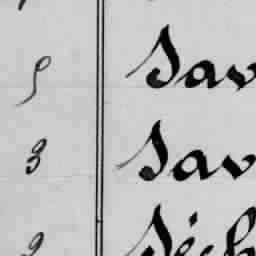 5 Sav
3 Sav
2 Séch